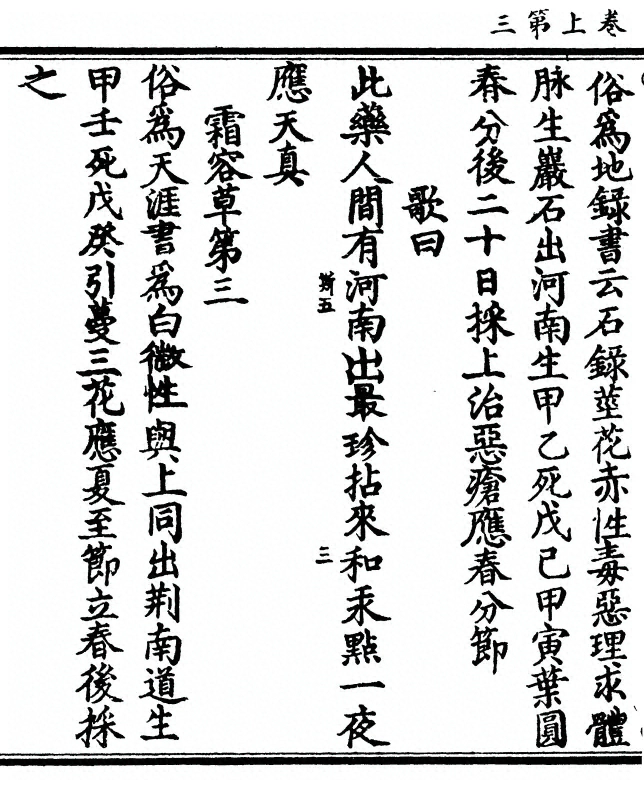 卷上第三
俗爲地録書云石錄莖花赤性毒惡理求體
脉生巖石出河南生甲乙死戊已甲寅葉圓
春分後二十日採上治惡瘡應春分節
歌曰
此藥人間有河南出最珍拈來和汞點一夜
斯五
三
應天真
霜容草第三
俗爲天涯書爲白微性與上同出荆南道生
甲壬死戊癸引蔓三花應夏至節立春後採
之